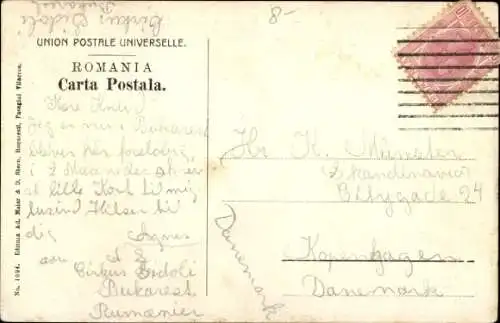 Cirkus Sidoli
Bukarest
8-
UNION POSTALE UNIVERSELLE.
ROMANIA
Carta Postala.
Kære
Jeg er nu i Bukarest
bliver her
i 2 Maaneder
et lille Kort til mig
tusind Hilsen til
dig Agnes
Cirkus Sidoli
Bukarest
Rumænien
No. 1094. Editura Ad. Maier & D. Stern, Bucuresti, Pasagiul Villacros.
Hr K. Münster
Skandinavia
24
Kopenhagen
Danemark
Danemark
10